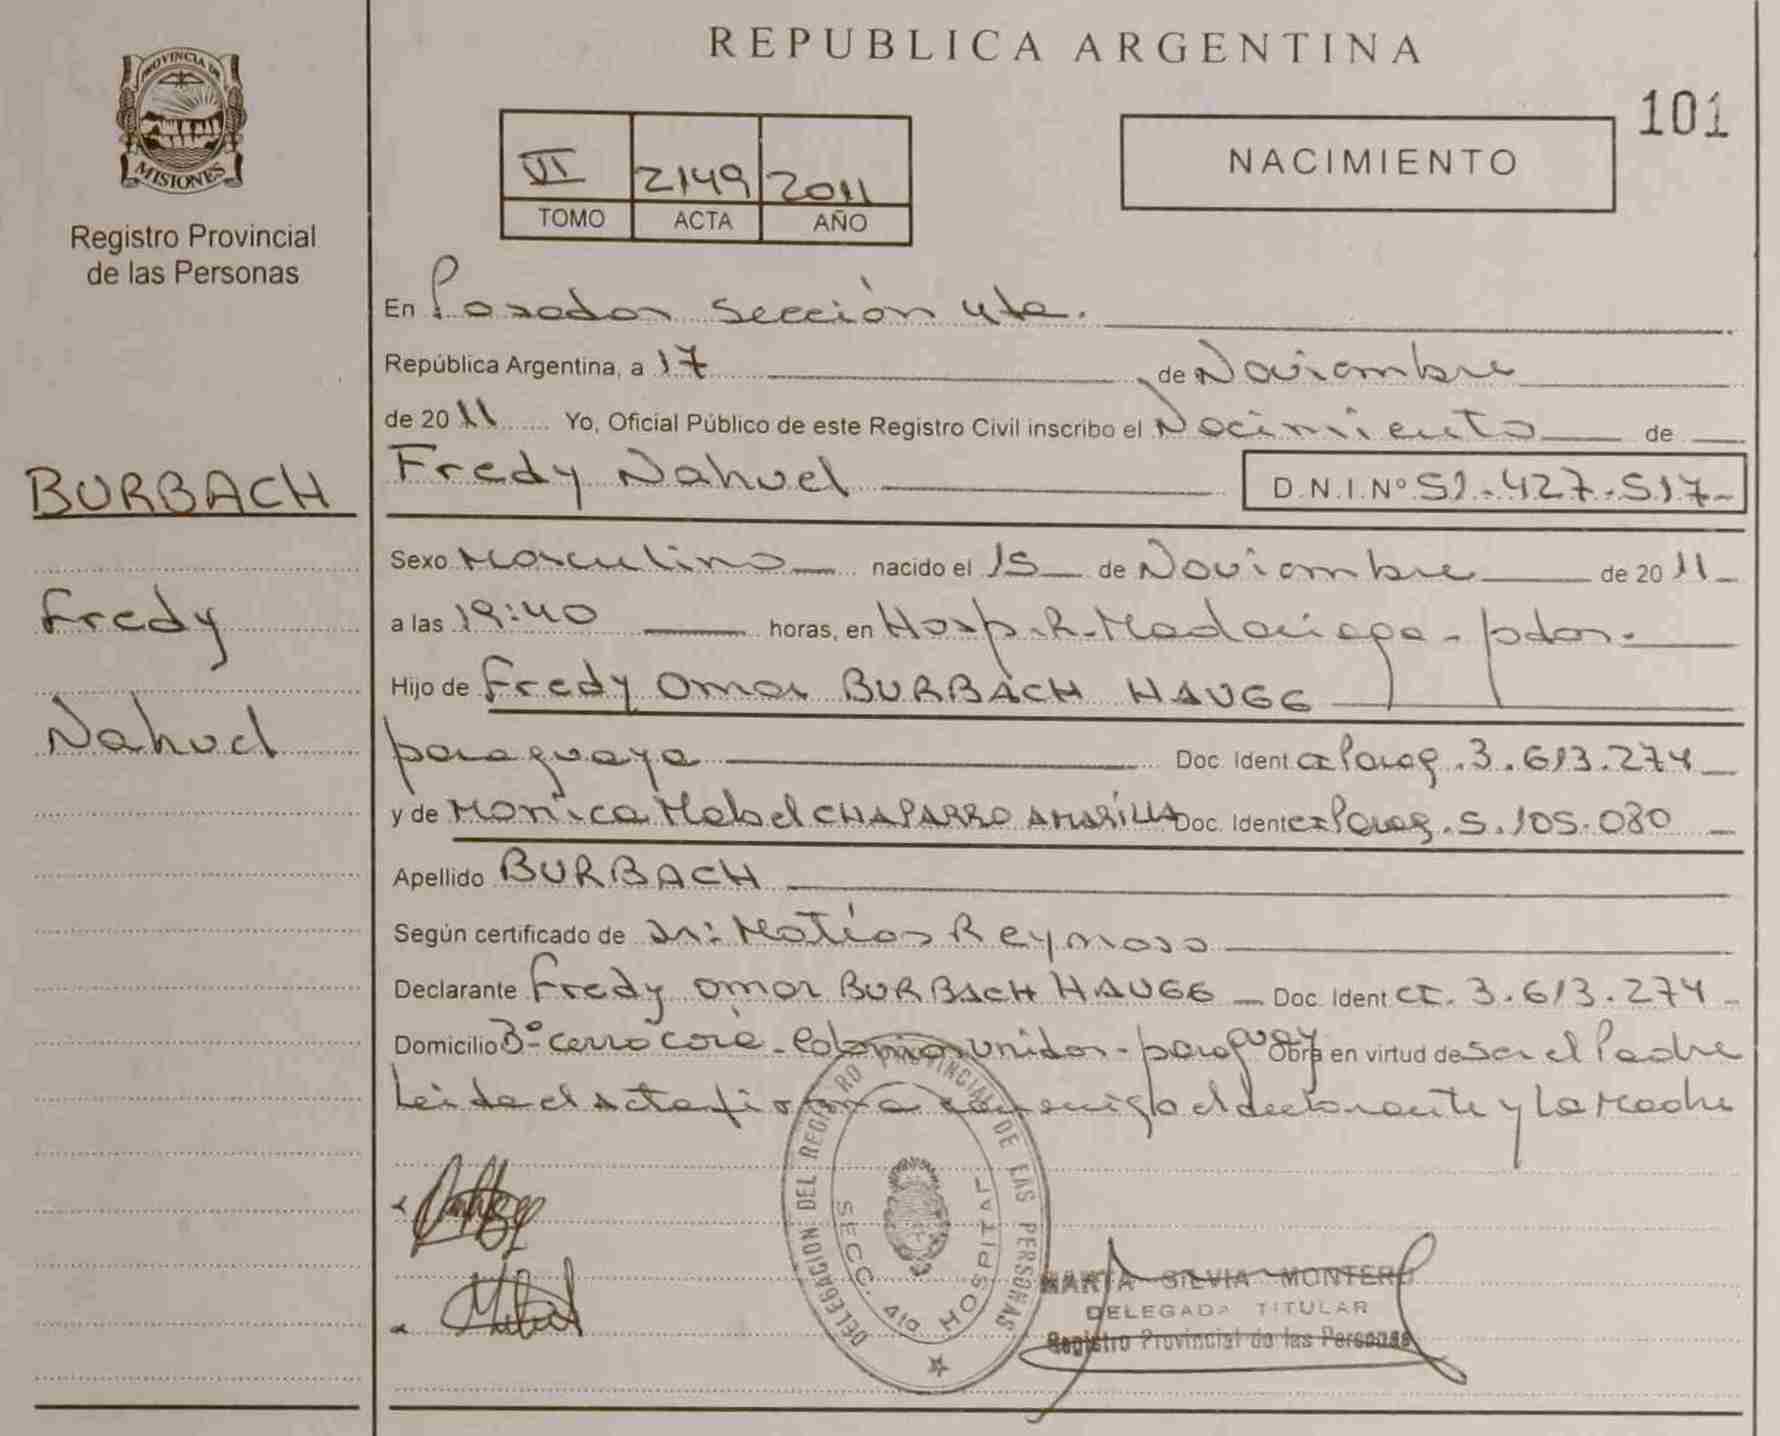 REPUBLICA ARGENTINA
101
PROVINCIA DE
MISIONES
Registro Provincial
de las Personas
VI 2149 2011
TOMO ACTA AÑO
NACIMIENTO
En Posadas sección 4ta.
República Argentina, a 17 de Noviembre
de 2011 Yo, Oficial Público de este Registro Civil inscribo el Nacimiento de
Fredy Nahuel D.N.I.Nº 51.427.517
BURBACH
Fredy
Nahuel
Sexo Masculino nacido el 15 de Noviembre de 2011
a las 19:40 horas, en Hosp. R. Madariaga - pdas.
Hijo de Fredy Omar BURBACH HAUGG
paraguaya Doc. Ident. CI Parag. 3.613.274
y de Monica Mabel CHAPARRO AMARILLA Doc. Ident. CI Parag. 5.105.080
Apellido BURBACH
Según certificado de Dr: Matías Reynoso
Declarante Fredy Omar BURBACH HAUGG Doc. Ident CI. 3.613.274
Domicilio Bº cerro corá - Colonias unidas - paraguay Obra en virtud de ser el Padre
Leida el Acta firma conmigo el declarante y La Madre
DELEGACION DEL REGISTRO PROVINCIAL DE LAS PERSONAS
SECC. 4ta HOSPITAL
MARTA SILVIA MONTERO
DELEGADA TITULAR
Registro Provincial de las Personas